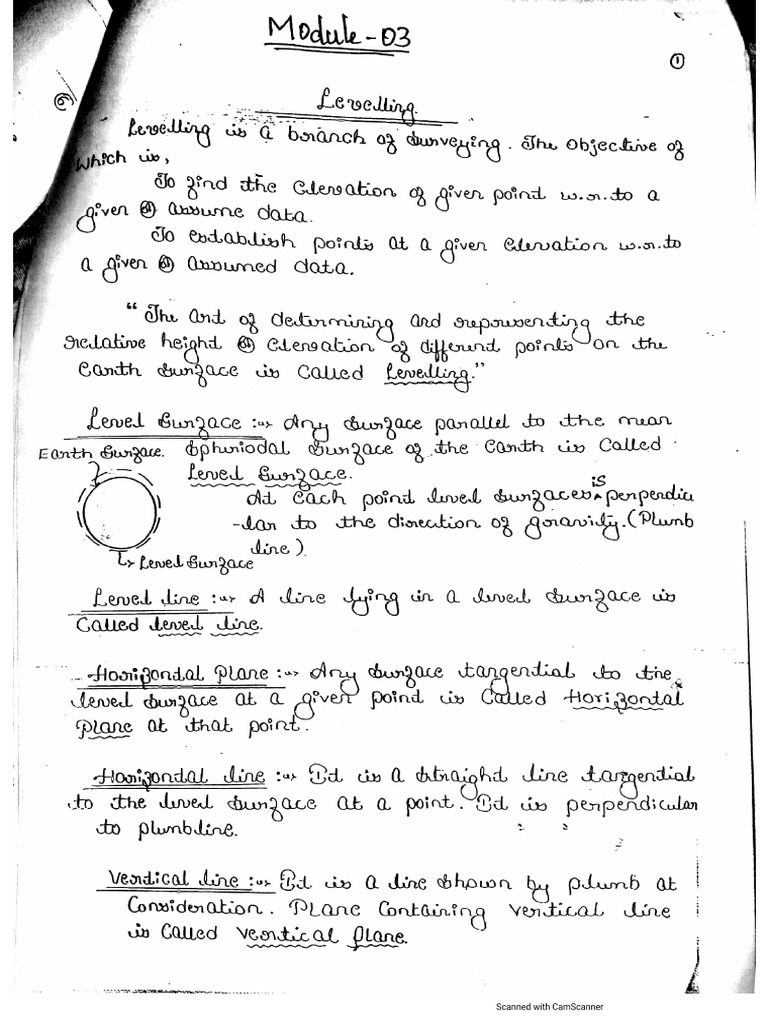 Module-03
①
Levelling
Levelling is a branch of surveying. The objective of
which is,
To find the Elevation of given point w.r.to a
given (or) assume data.
To establish points at a given elevation w.r.to
a given (or) assumed data.
"The art of determining and representing the
relative height (or) Elevation of different points on the
Earth surface is called Levelling."
Level Surface :-> Any surface parallel to the mean
Earth Surface. Sphuriodal surface of the Earth is called
Level Surface.
At each point level surfaces is perpendicu
-lar to the direction of gravity. (Plumb
line).
↳ Level Surface
Level line :-> A line lying in a level surface is
called level line.
Horizontal Plane :-> Any surface tangential to the
level surface at a given point is called Horizontal
Plane at that point.
Horizontal line :-> It is a straight line tangential
to the level surface at a point. It is perpendicular
to plumbline.
Vertical line :-> It is a line shown by plumb at
Consideration. Plane containing vertical line
is called vertical plane.
Scanned with CamScanner